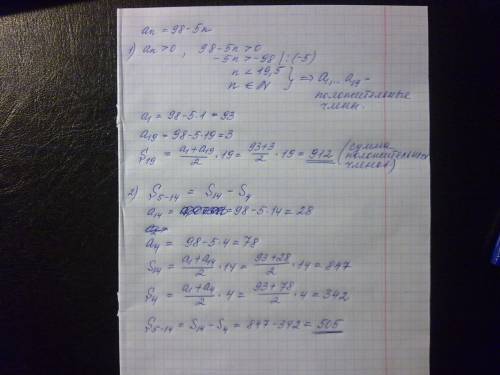 an = 98-5n
1) an>0, 98-5n>0
-5n>-98 |:(-5)
n<19,5 } ⇒ a₁,... a₁₉ -
n ∈ N положительные
члены.
a₁ = 98-5·1 = 93
a₁₉ = 98-5·19 = 3
S₁₉ = (a₁+a₁₉)/2 · 19 = (93+3)/2 · 19 = 912 (сумма положительных членов)
2) S₅₋₁₄ = S₁₄ - S₄
a₁₄ = 98-5·14 = 28
a₄ = 98-5·4 = 78
S₁₄ = (a₁+a₁₄)/2 · 14 = (93+28)/2 · 14 = 847
S₄ = (a₁+a₄)/2 · 4 = (93+78)/2 · 4 = 342
S₅₋₁₄ = S₁₄ - S₄ = 847-342 = 505